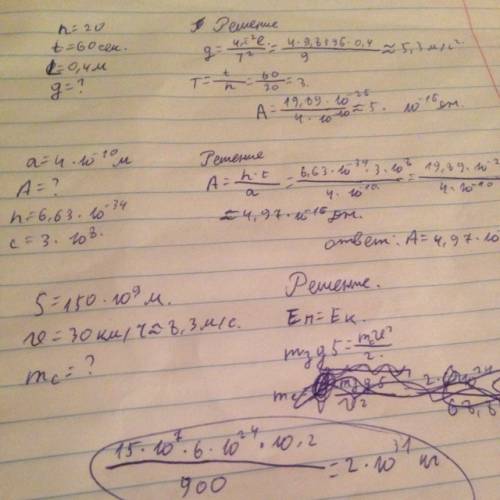 n=20
t=60сек.
l=0,4м
g=?
Решение
g=4π²l/T²=4·9,8596·0,4/9≈5,3м/с²
T=t/n=60/20=3.
A=19,89·10⁻²⁶/4·10⁻¹⁰≈5·10⁻¹⁶Дж.
a=4·10⁻¹⁰м
A=?
h=6,63·10⁻³⁴
c=3·10⁸.
Решение
A=h·c/a=6,63·10⁻³⁴·3·10⁸/4·10⁻¹⁰=19,89·10⁻²/4·10⁻¹⁰
≈4,97·10⁻¹⁶Дж.
ответ: A=4,97·10
S=150·10⁹м.
υ=30км/ч≈8,3м/с.
mc=?
Решение.
Eп=Eк.
mзgS=mcυ²/2.
15·10⁷·6·10²⁴·10·2/900=2·10³¹кг